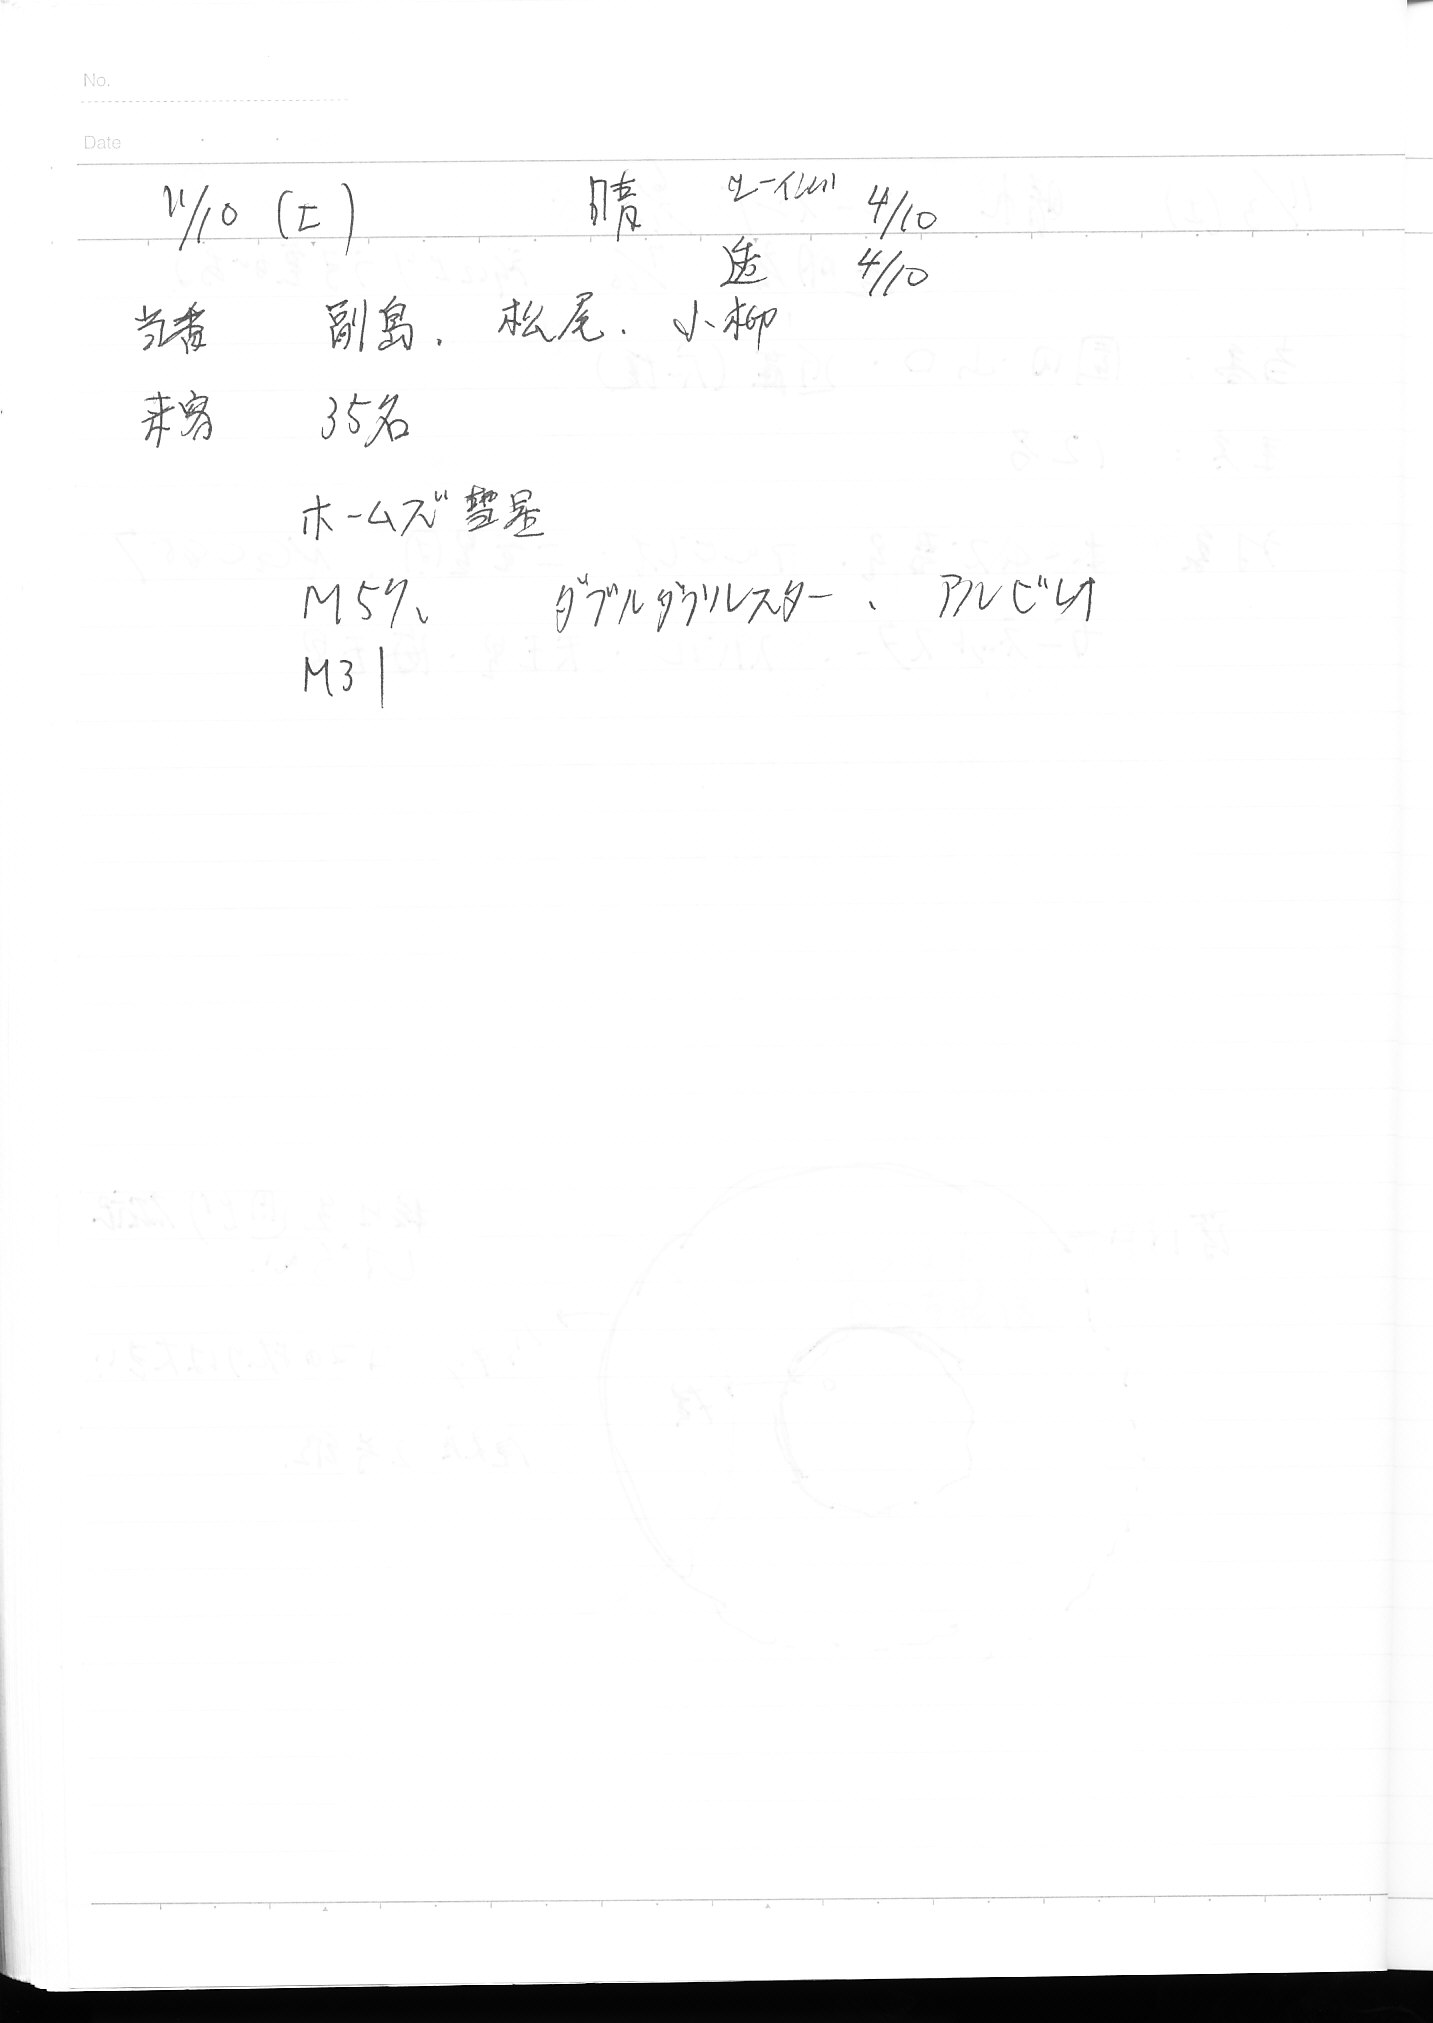 No.
Date
11/10 (土) 晴 シーイング 4/10
透 4/10
当番 副島. 松尾. 小柳
来客 35名
ホームズ彗星
M57、 ダブルダブルスター、 アルビレオ
M31